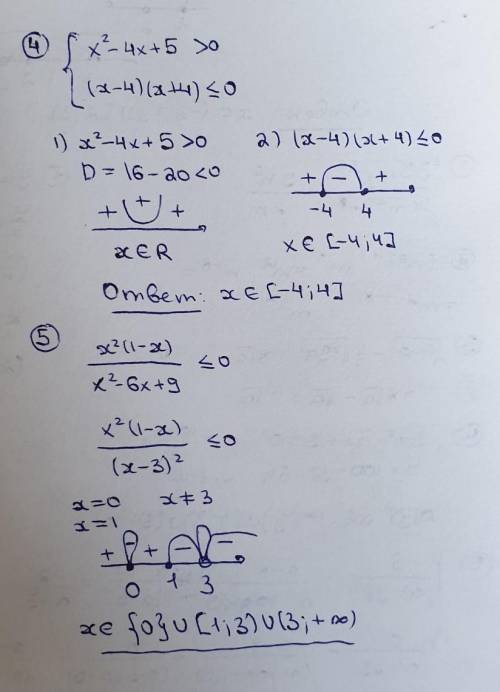 ④ { x² - 4x + 5 > 0
(x-4)(x+4) ≤ 0
1) x² - 4x + 5 > 0
D = 16 - 20 < 0
+ + +
x ∈ R
2) (x-4)(x+4) ≤ 0
+ - +
-4 4
x ∈ [-4; 4]
Ответ: x ∈ [-4; 4]
⑤
x²(1-x) / x² - 6x + 9 ≤ 0
x²(1-x) / (x-3)² ≤ 0
x = 0 x ≠ 3
x = 1
+ - + - -
0 1 3
x ∈ {0} ∪ [1; 3) ∪ (3; +∞)